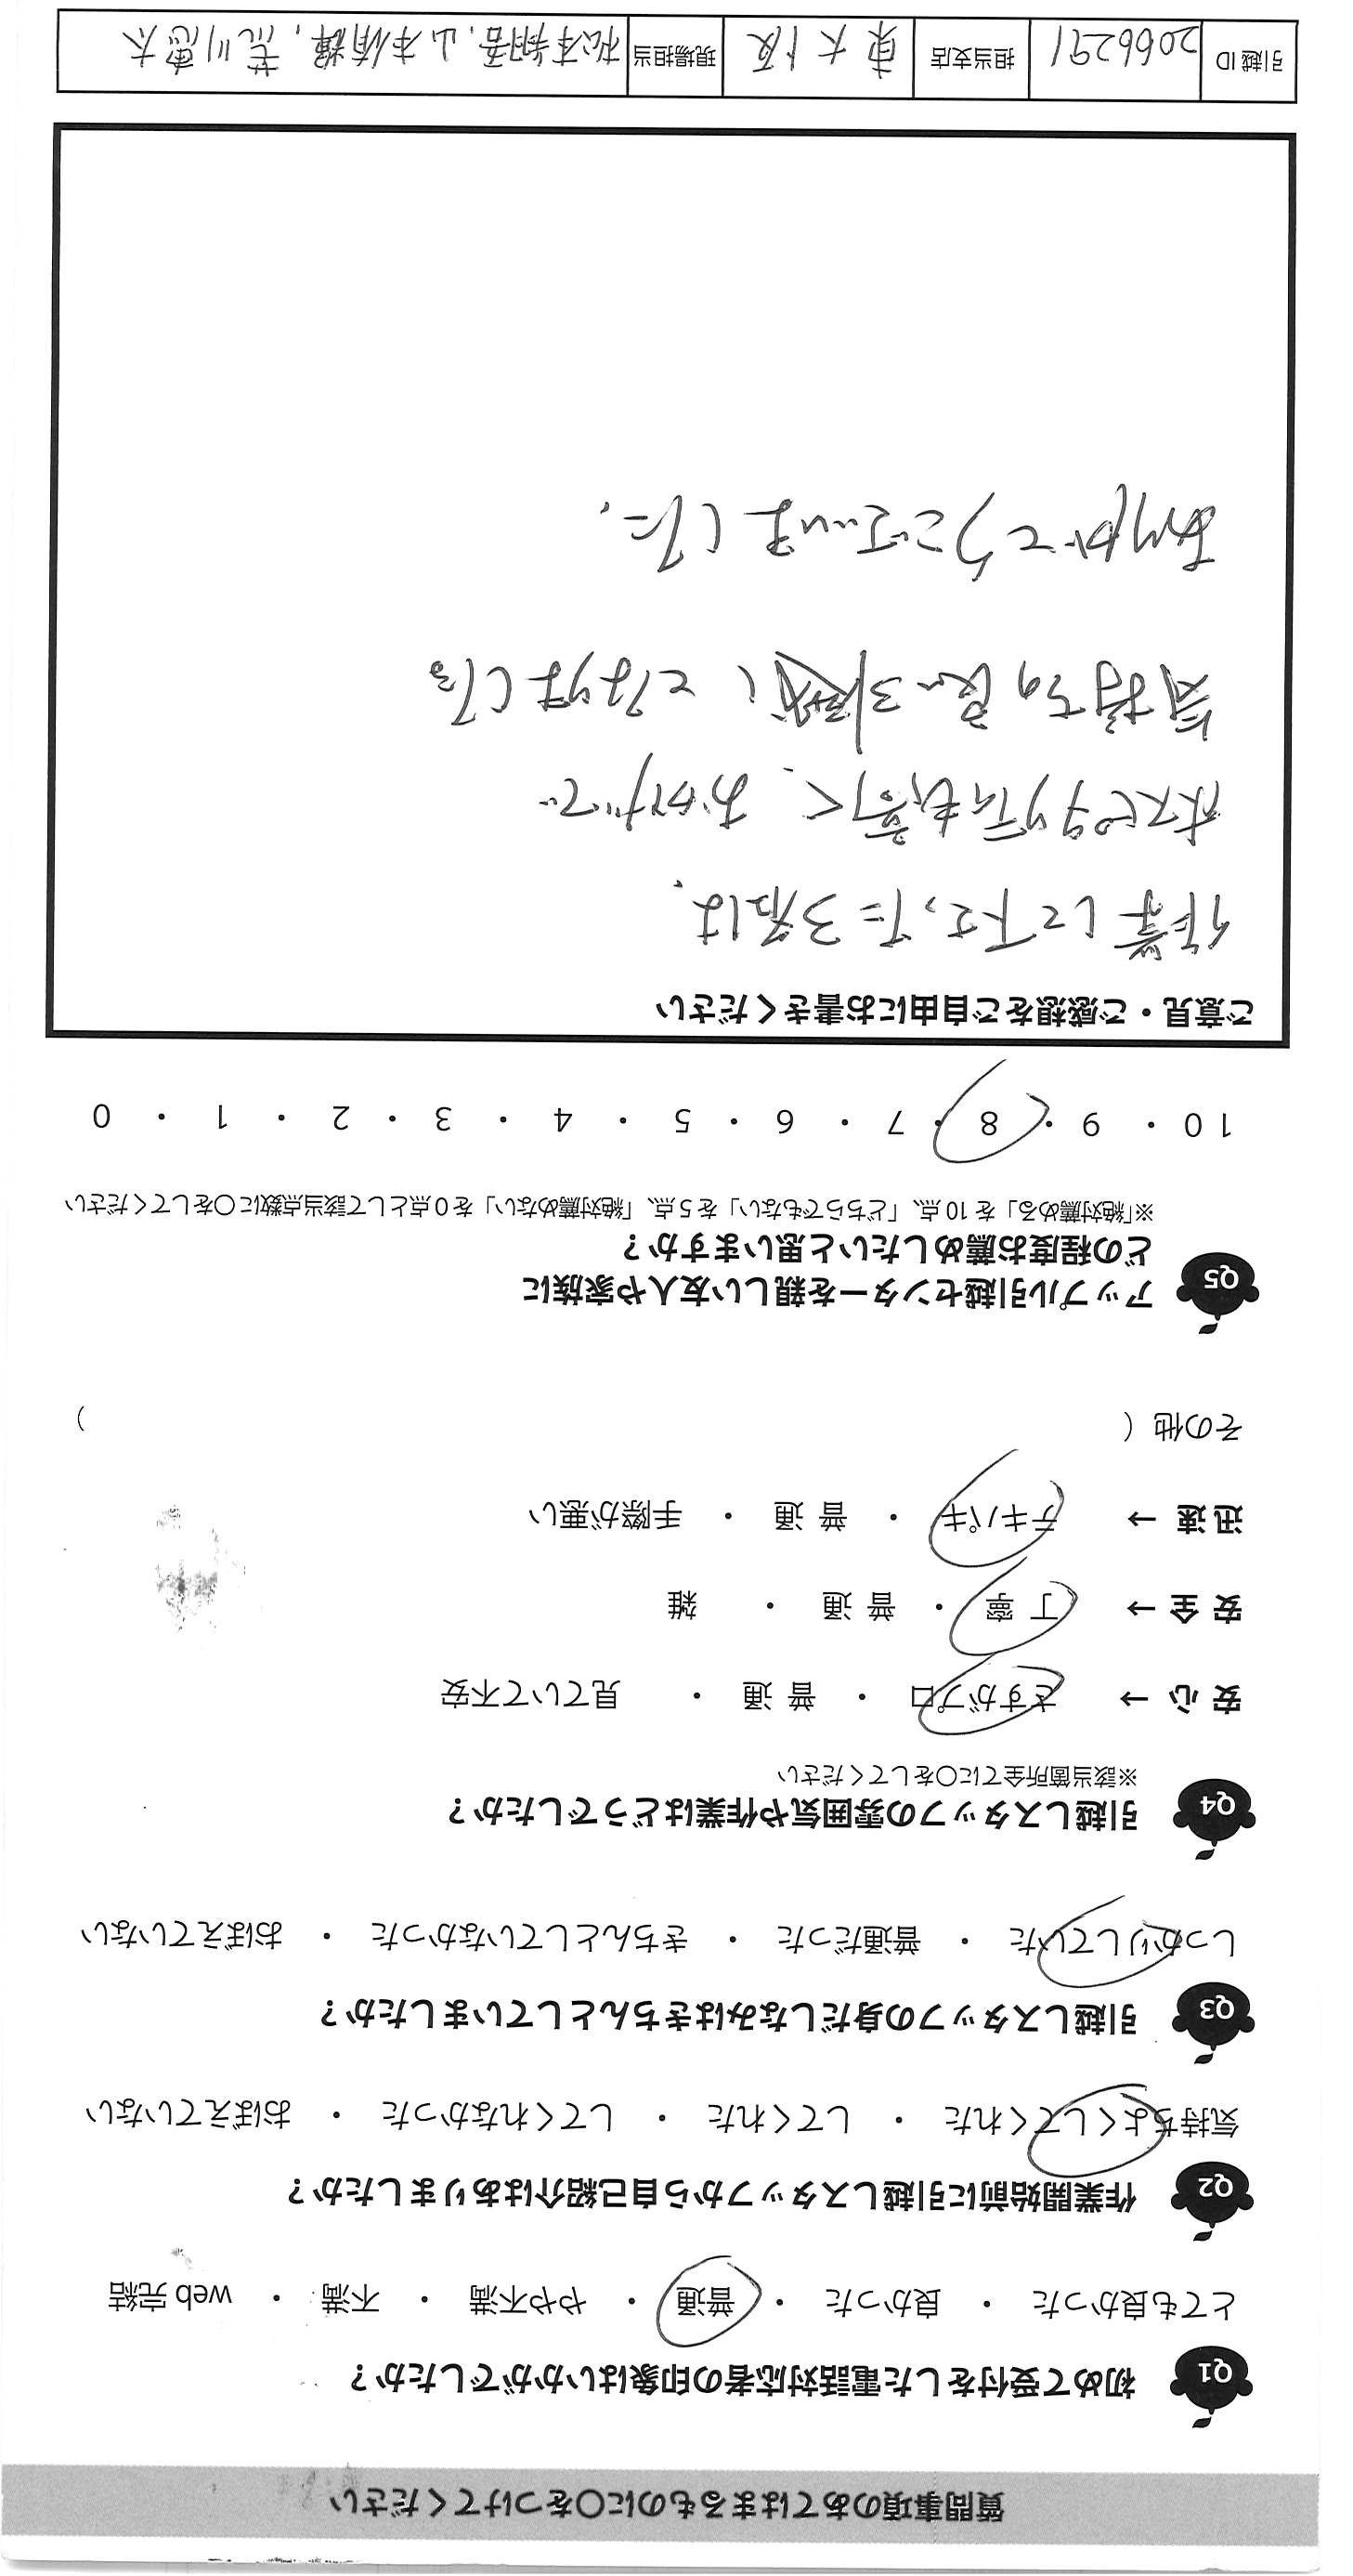 質問事項のあてはまるものに〇をつけてください
Q1 初めて受付をした電話対応者の印象はいかがでしたか？
とても良かった ・ 良かった ・ 普通 ・ やや不満 ・ 不満 ・ web完結
Q2 作業開始前に引越しスタッフから自己紹介はありましたか？
気持ちよくしてくれた ・ してくれた ・ してくれなかった ・ おぼえていない
Q3 引越しスタッフの身だしなみはきちんとしていましたか？
しっかりしていた ・ 普通だった ・ きちんとしていなかった ・ おぼえていない
Q4 引越しスタッフの雰囲気や作業はどうでしたか？
※該当箇所全てに〇をしてください
安心→ さすがプロ ・ 普通 ・ 見ていて不安
安全→ 丁寧 ・ 普通 ・ 雑
迅速→ テキパキ ・ 普通 ・ 手際が悪い
その他（ ）
Q5 アップル引越センターを親しい友人や家族に
どの程度お薦めしたいと思いますか？
※「絶対薦める」を10点、「どちらでもない」を5点、「絶対薦めない」を0点として該当点数に〇をしてください
10 ・ 9 ・ 8 ・ 7 ・ 6 ・ 5 ・ 4 ・ 3 ・ 2 ・ 1 ・ 0
ご意見・ご感想をご自由にお書きください
作業して下さった3名は、
ホスピタリティも高く、おかげで
気持ちの良い引越しとなりました。
ありがとうございました.
引越ID 2066291 担当支店 東大阪 現場担当 松本翔吾, 山本侑輝, 荒川恵太